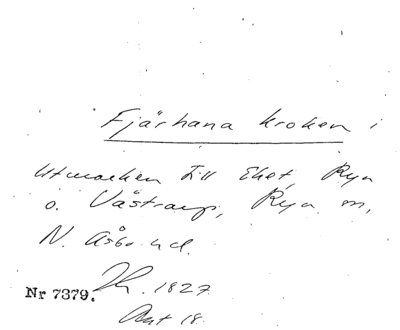 Fjärhana kroken i
Utmarken till Eket, Rya
o. Västrarp, Rya sn,
N. Åsbo hd.
Nr 7379. Th. 1827
Akt 18.